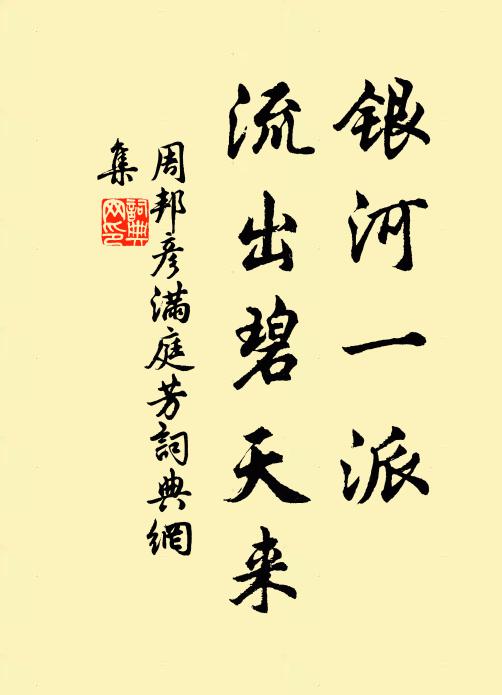 银河一派
流出碧天来
周邦彦满庭芳詞典網
集
詞典网印